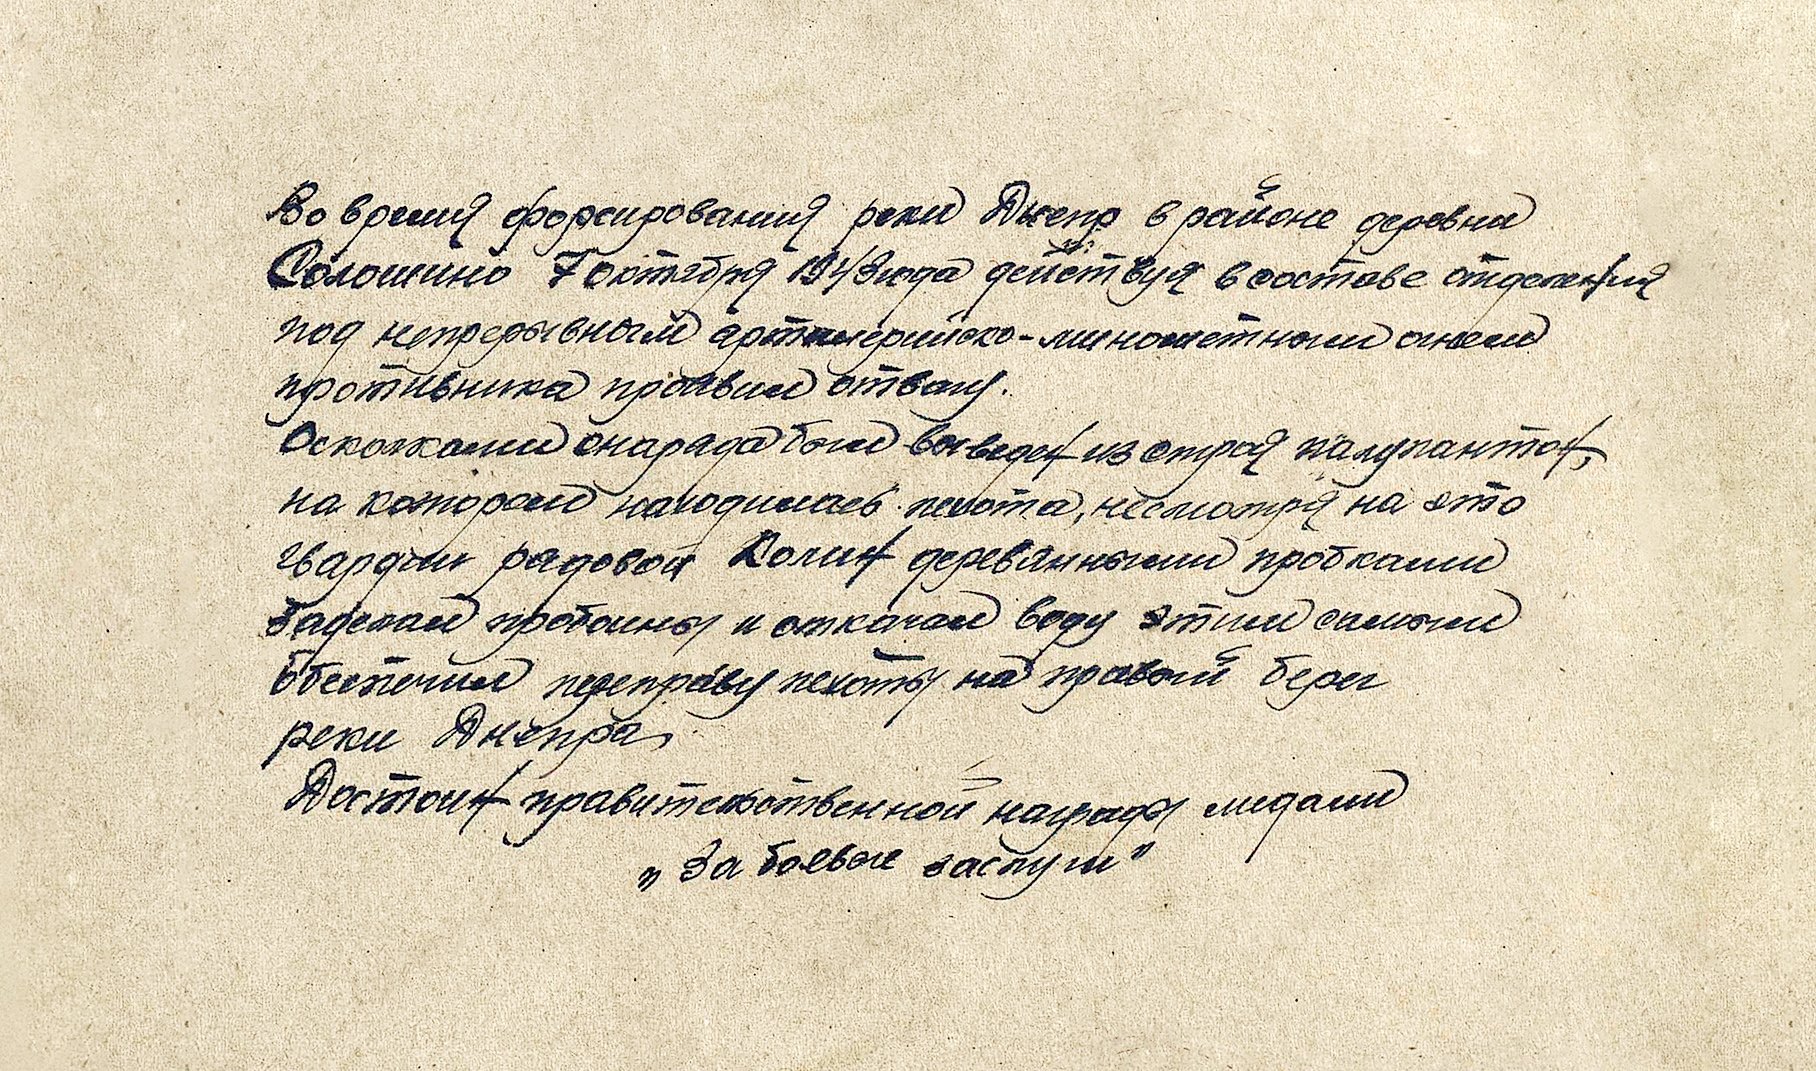 Во время форсирования реки Днепр в районе деревни
Солошино 7 октября 1943 года действуя в составе отделения
под непрерывным артиллерийско-минометным огнем
противника проявил отвагу.
Осколками снаряда был выведен из строя палупантон,
на котором находилась пехота, несмотря на это
гвардии рядовой Колин деревянными пробками
заделал пробоины и откачал воду этим самым
обеспечил переправу пехоты на правый берег
реки Днепра
Достоин правительственной награды медали
„За боевые заслуги"